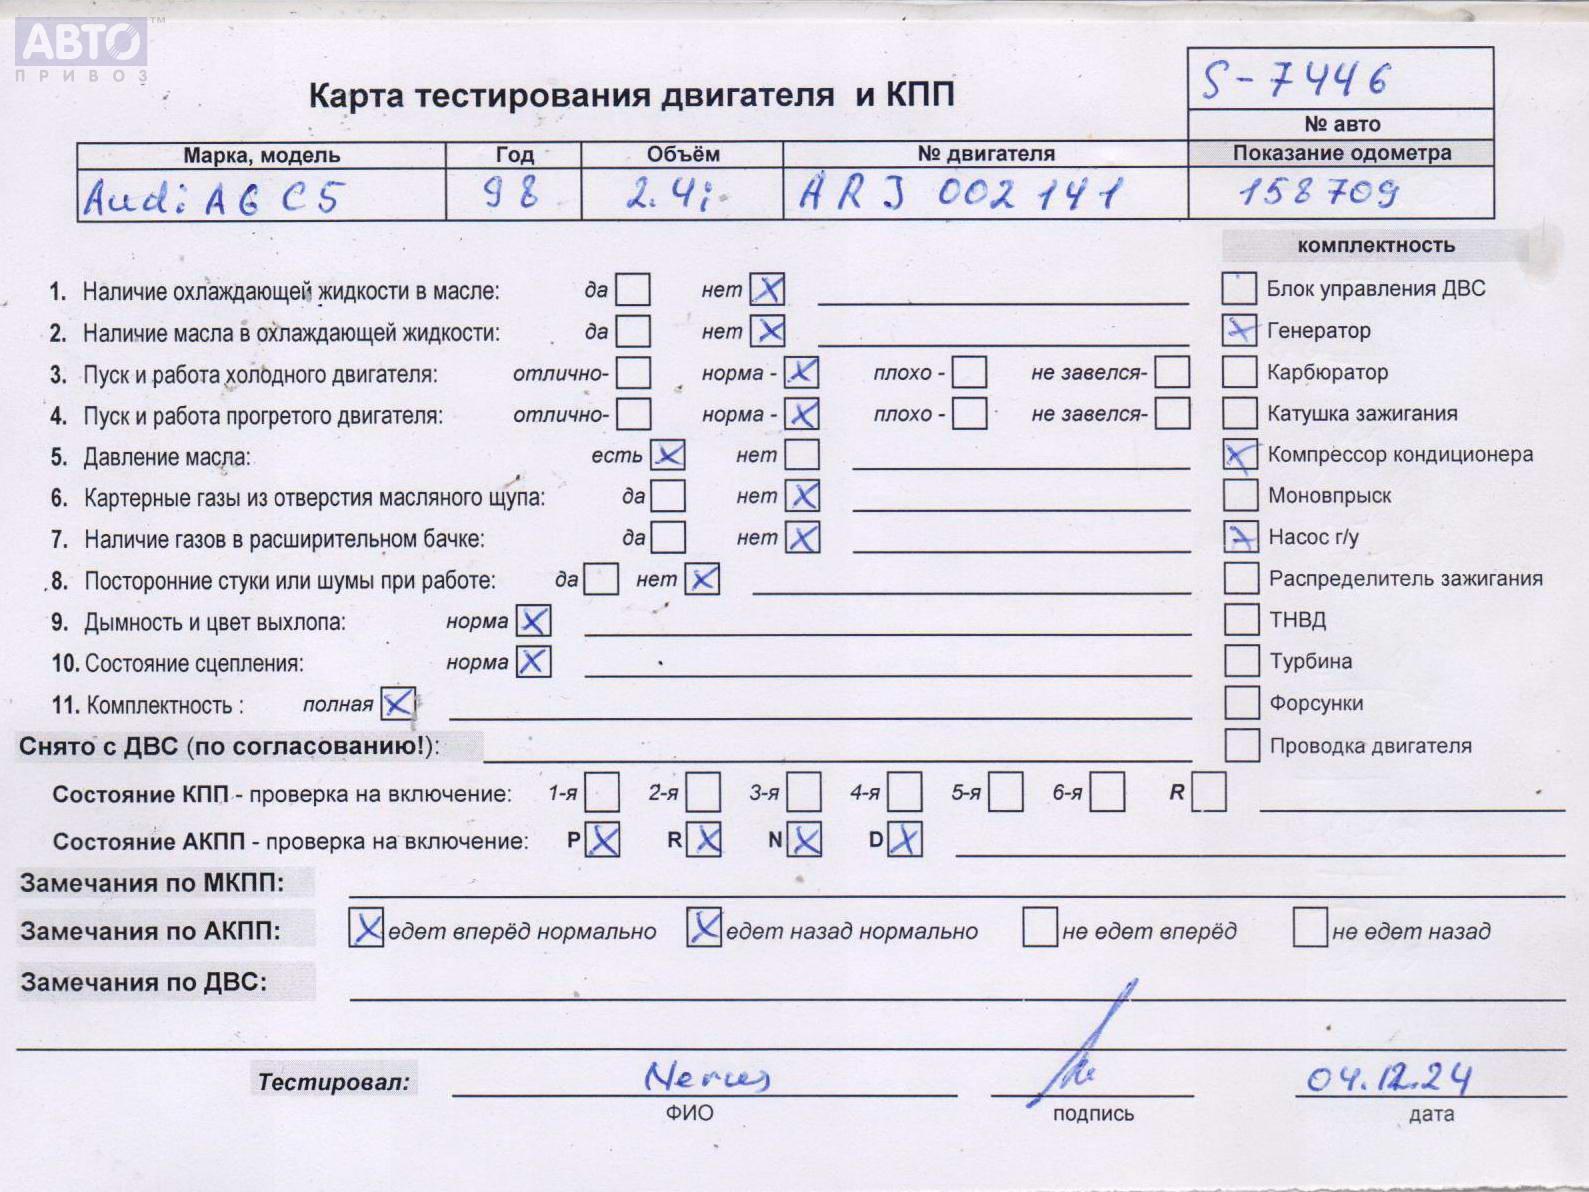 АВТО™
ПРИВОЗ
S-7446
Карта тестирования двигателя и КПП
№ авто
Марка, модель Год Объём № двигателя Показание одометра
Audi A6 C5 98 2.4i ARJ 002141 158709
комплектность
1. Наличие охлаждающей жидкости в масле: да нет X
Блок управления ДВС
2. Наличие масла в охлаждающей жидкости: да нет X
X Генератор
3. Пуск и работа холодного двигателя: отлично- норма - X плохо - не завелся-
Карбюратор
4. Пуск и работа прогретого двигателя: отлично- норма - X плохо - не завелся-
Катушка зажигания
5. Давление масла: есть X нет
X Компрессор кондиционера
6. Картерные газы из отверстия масляного щупа: да нет X
Моновпрыск
7. Наличие газов в расширительном бачке: да нет X
X Насос г/у
8. Посторонние стуки или шумы при работе: да нет X
Распределитель зажигания
9. Дымность и цвет выхлопа: норма X
ТНВД
10. Состояние сцепления: норма X
Турбина
11. Комплектность : полная X
Форсунки
Снято с ДВС (по согласованию!):
Проводка двигателя
Состояние КПП - проверка на включение: 1-я 2-я 3-я 4-я 5-я 6-я R
Состояние АКПП - проверка на включение: P X R X N X D X
Замечания по МКПП:
Замечания по АКПП: X едет вперёд нормально X едет назад нормально не едет вперёд не едет назад
Замечания по ДВС:
Тестировал: 04.12.24
ФИО подпись дата